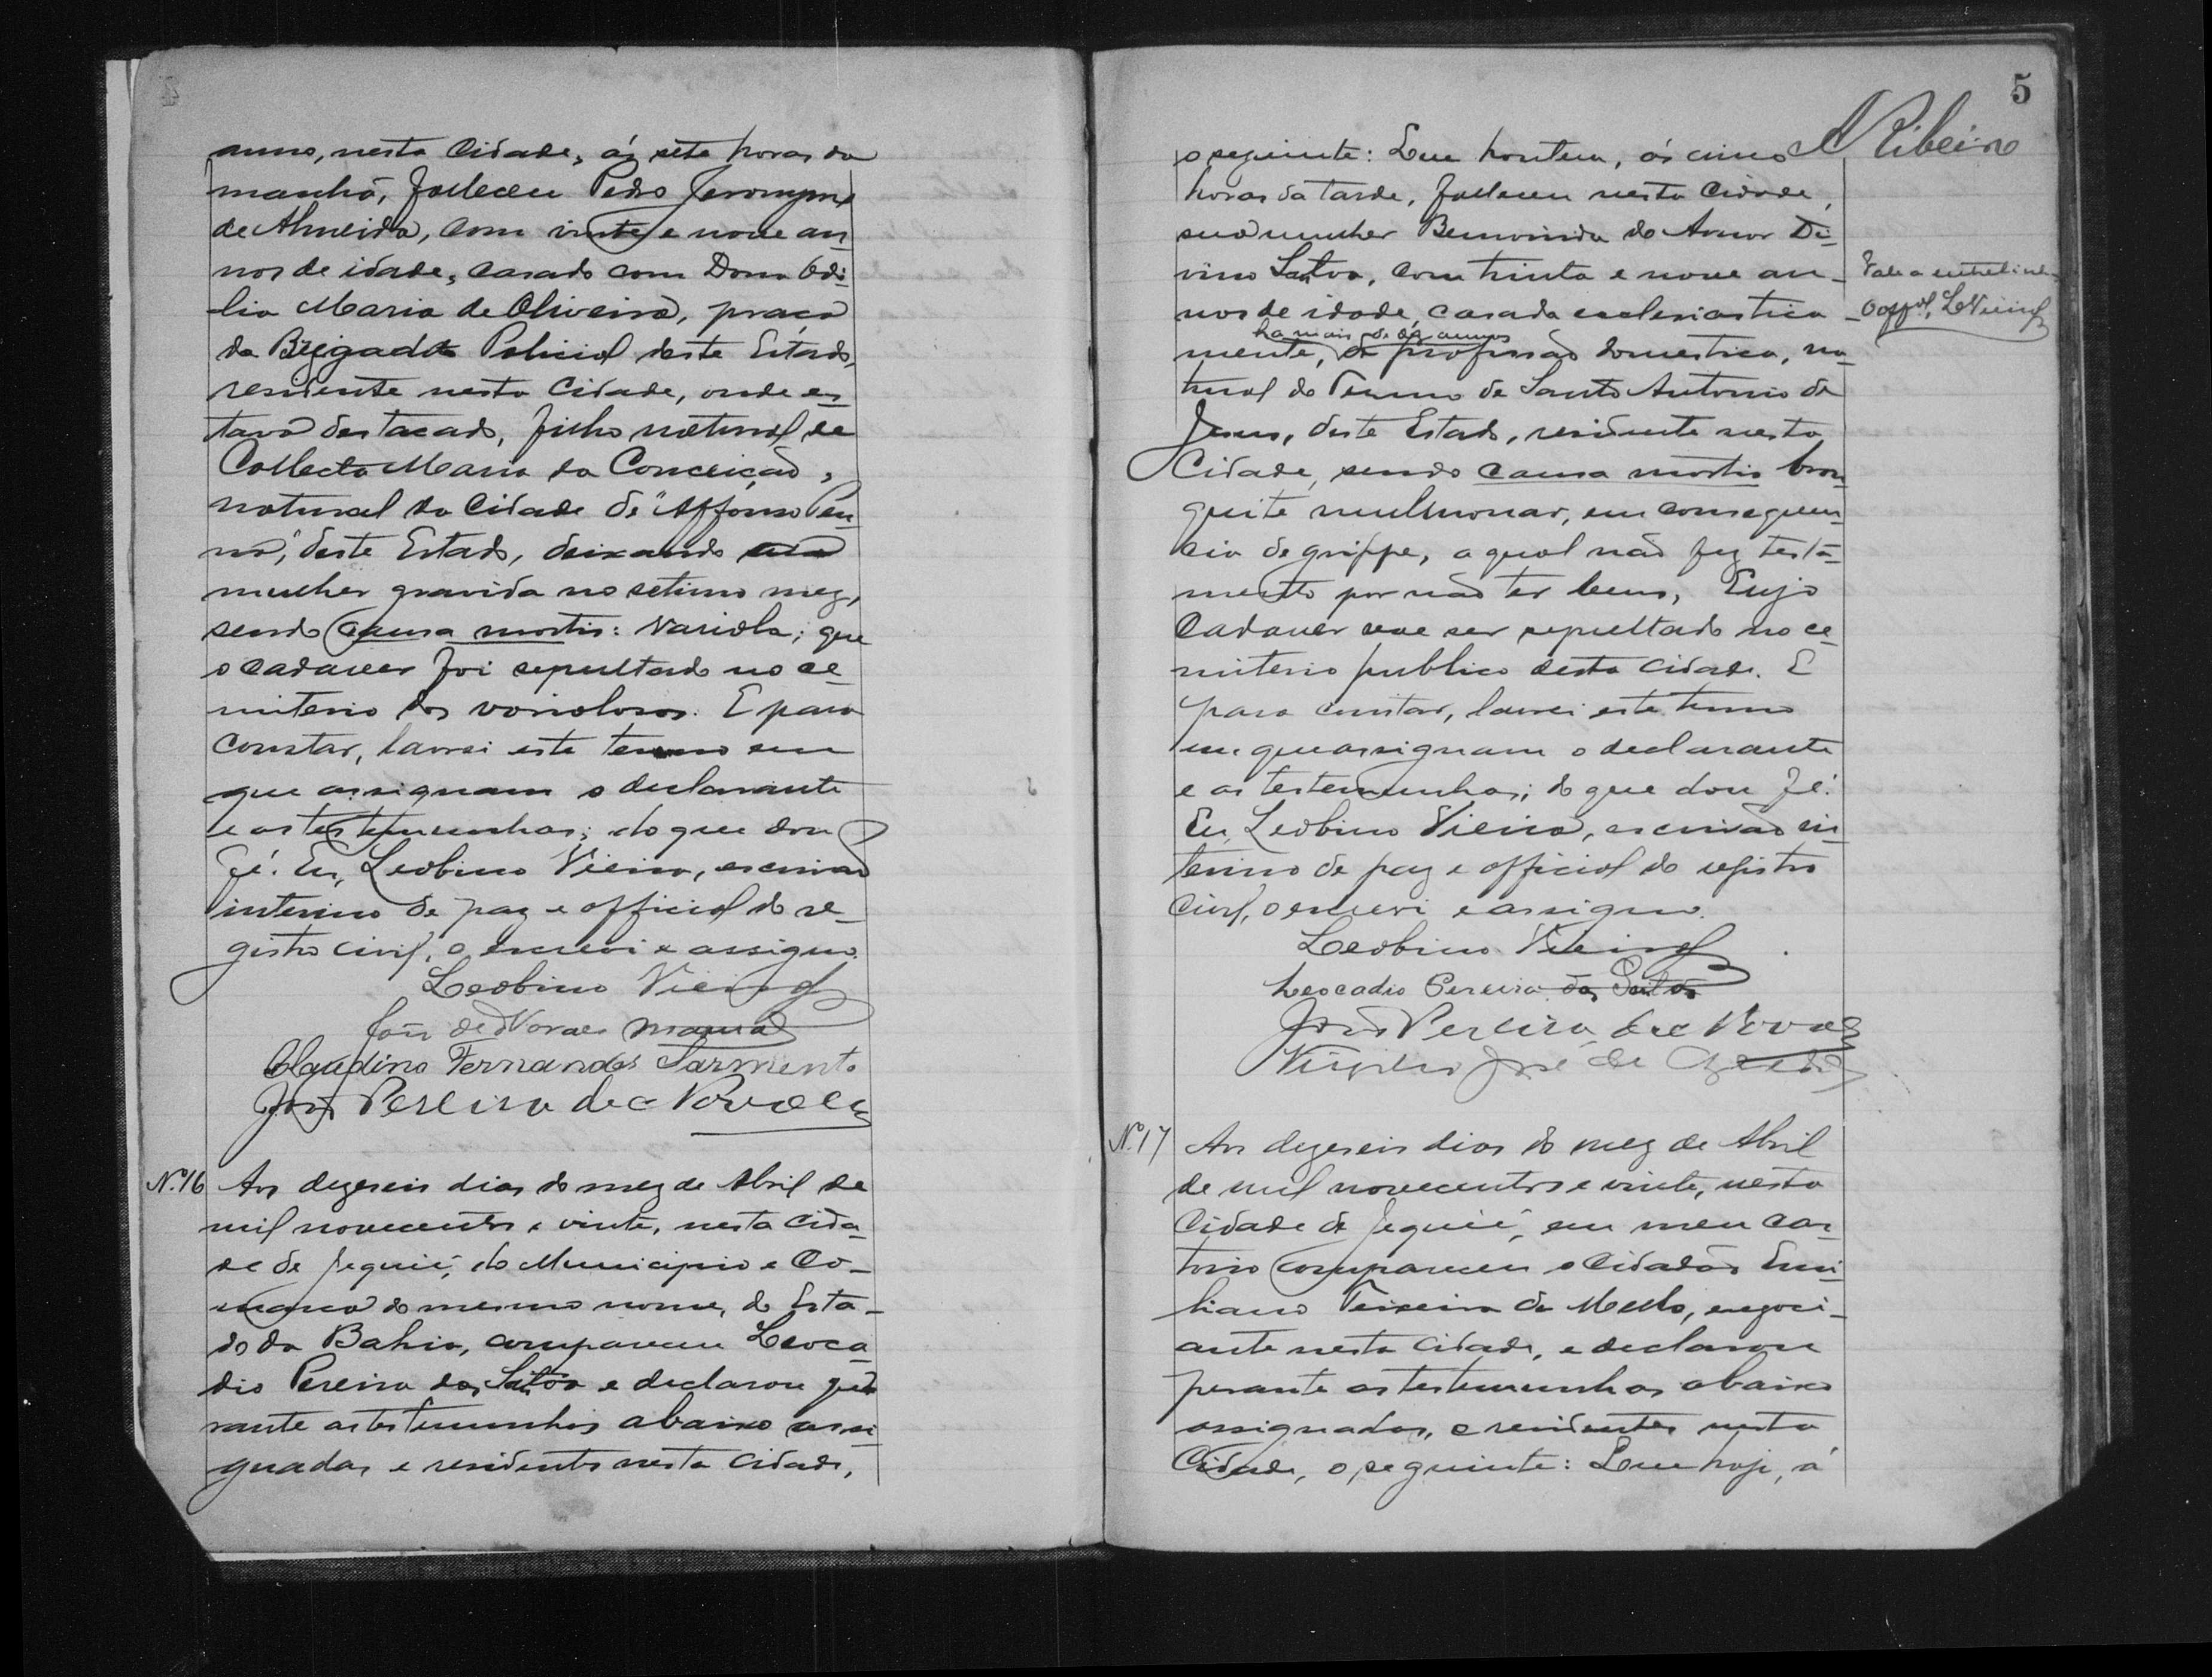 anno, nesta Cidade, ás sete horas da
manhã, falleceu Pedro Jeronymo
de Almeida, com vinte e nove an-
nos de idade, casado com Dona Odi-
lia Maria de Oliveira, praça
da Brigada Policial deste Estado,
residente nesta Cidade, onde es-
tava destacado, filho natural de
Collecta Maria da Conceição,
natural da Cidade de "Affonso Pen-
na", deste Estado, deixando
mulher gravida no setimo mez,
sendo causa mortis: Variola; que
o cadaver foi sepultado no ce-
miterio dos variolosos. E para
constar, lavrei este termo em
que assignam o declarante
e as testemunhas; do que dou
fé. Eu, Leobino Vieira, escrivão
interino de paz e official do re-
gistro civil, o escrevi e assigno.
Leobino Vieira
João de Novaes
Claudino Fernandes Sarmento
José Pereira de Novaes
Nº 16 Aos dezeseis dias do mez de Abril de
mil novecentos e vinte, nesta Cida-
de de Jequié, do Municipio e Co-
marca do mesmo nome, do Esta-
do da Bahia, compareceu Leoca-
dio Pereira dos Santos e declarou pe-
rante as testemunhas abaixo assi-
gnadas e residentes nesta Cidade,
5
A Ribeiro
o seguinte: Que hontem, ás cinco
horas da tarde, falleceu nesta Cidade,
sua mulher Bemvinda do Amor Di-
vino Santos, com trinta e nove an-
nos de idade, casada ecclesiastica-
ha mais de annos
mente, de profissão domestica, na-
tural do Termo de Santo Antonio de
Jesus, deste Estado, residente nesta
Cidade, sendo causa mortis bron-
quite pulmonar, em consequen-
cia de grippe, a qual não fez testa-
mento por não ter bens, Cujo
Cadaver vae ser sepultado no ce-
miterio publico desta Cidade. E
para constar, lavrei este termo
em que assignam o declarante
e as testemunhas; do que dou fé.
Eu, Leobino Vieira, escrivão in-
terino de paz e official do registro
Civil, o escrevi e assigno.
Leobino Vieira
Leocadio Pereira dos Santos
José Pereira de Novaes
Virgilio José de
Vale a entrelinha
O offal, L Vieira
Nº 17 Aos dezeseis dias do mez de Abril
de mil novecentos e vinte, nesta
Cidade de Jequié, em meu car-
torio compareceu o Cidadão Emi-
liano Teixeira de Mello, negoci-
ante nesta Cidade, e declarou
perante as testemunhas abaixo
assignadas, e residentes nesta
Cidade, o seguinte: Que hoje, á